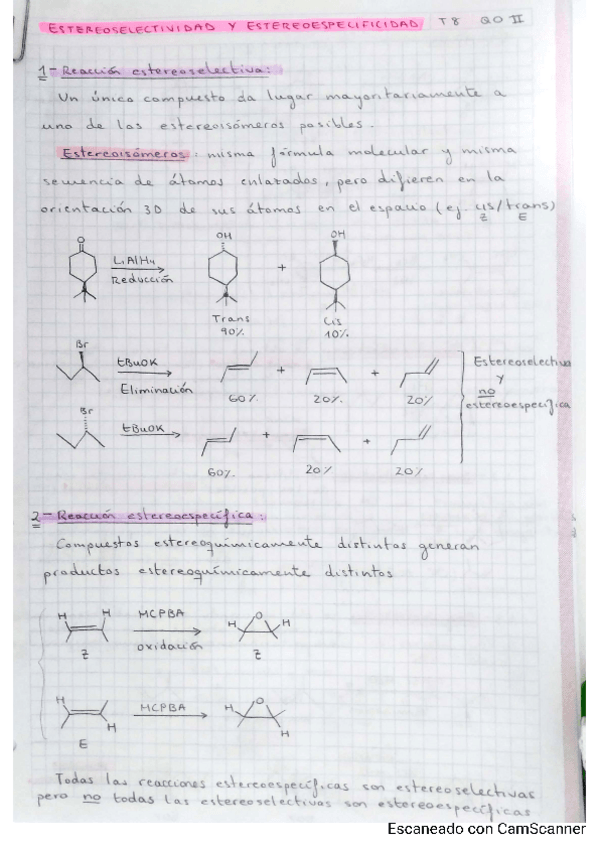 ESTEREOSELECTIVIDAD Y ESTEREOESPECIFICIDAD T8 QO II
1- Reacción estereoselectiva:
Un único compuesto da lugar mayoritariamente a
uno de los estereoisómeros posibles.
Estereoisómeros: misma fórmula molecular y misma
secuencia de átomos enlazados, pero difieren en la
orientación 3D de sus átomos en el espacio (ej. cis/trans)
Z E
O
LiAlH4
Reducción
OH
+
OH
Trans
90%
Cis
10%
Br
tBuOK
Eliminación
+
+
60%
20%
20%
Estereoselectiva
y
no
estereoespecífica
Br
tBuOK
+
+
60%
20%
20%
2- Reacción estereoespecífica:
Compuestos estereoquímicamente distintos generan
productos estereoquímicamente distintos
H H
MCPBA
oxidación
H O H
Z
Z
H
H
E
MCPBA
H O
H
Todas las reacciones estereoespecíficas son estereoselectivas
pero no todas las estereoselectivas son estereoespecíficas
Escaneado con CamScanner